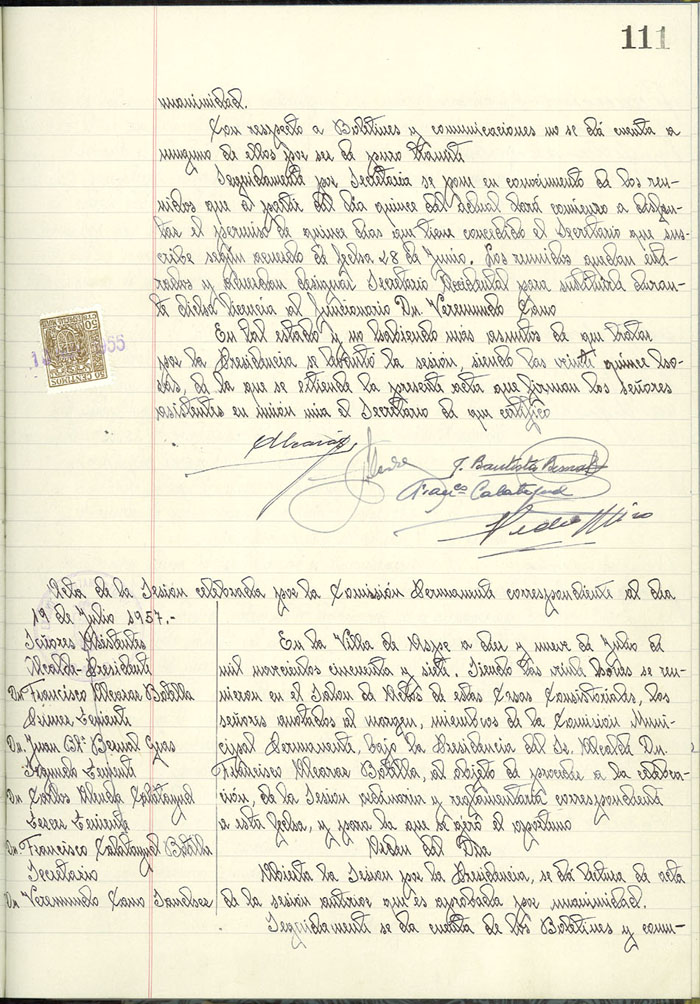 111
unanimidad.
Con respecto a Boletines y comunicaciones no se dá cuenta a
ninguno de ellos por ser de puro tramite
Seguidamente por Secretaria se pone en conocimiento de los reu-
nidos que al partir del dia quince del actual dará comienzo a disfru-
tar el permiso de quince dias que tiene concedido el Secretario que sus-
cribe según acuerdo de fecha 28 de Junio. Los reunidos quedan ente-
rados y acuerdan designar Secretario Accidental para substituirle duran-
te dicha licencia al funcionario Dn. Veremundo Cano
En tal estado y no habiendo más asuntos de que tratar
por la Presidencia se levantó la sesión, siendo las veinte quince ho-
ras, de la que se extiende la presente acta que firman los Señores
asistentes en unión mia el Secretario de que certifico
50 CENTIMOS
Alcaraz
J. Bautista Bernal
Franco Calatayud
Pedro Miro
Acta de la Sesión celebrada por la Comissión Permanente correspondiente al dia
19 de Julio 1957.-
Señores Asistentes
Alcalde-Presidente
Dn. Francisco Alcaraz Botella
Primer Teniente
Dn. Juan Bta Bernal Gras
Segundo Teniente
Dn. Carlos Alenda Calatayud
Tercer Teniente
Dn. Francisco Calatayud Botella
Secretario
Dn. Veremundo Cano Sanchez
En la Villa de Aspe a diez y nueve de Julio de
mil novecientos cincuenta y siete. Siendo las veinte horas se reu-
nieron en el Salon de Actos de estas Casas Consistoriales, los
señores anotados al margen, miembros de la Comision Muni-
cipal Permanente, bajo la Presidencia del Sr. Alcalde Dn.
Francisco Alcaraz Botella, al objeto de proceder a la celebra-
ción, de la Sesion ordinaria y reglamentaria correspondiente
a esta fecha, y para la que se giró el oportuno
Orden del Dia
Abierta la Sesion por la Presidencia, se dá lectura de acta
de la sesión anterior que es aprobada por unanimidad.
Seguidamente se da cuenta de los Boletines y comu-